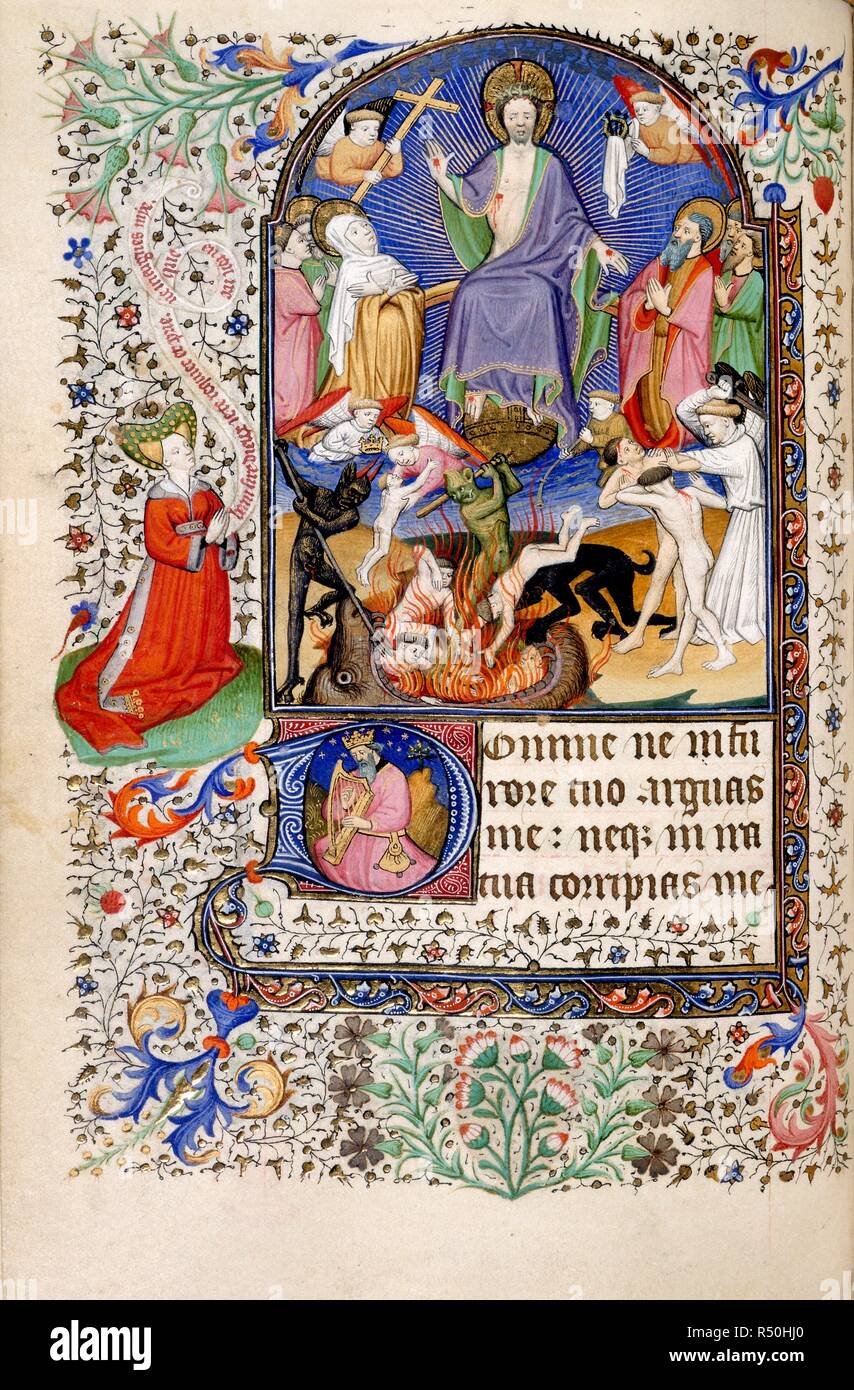 Domine ne in fu
rore tuo arguas
me : neqꝫ in ira
tua corripias me
alamy
Image ID: R50HJ0
www.alamy.com